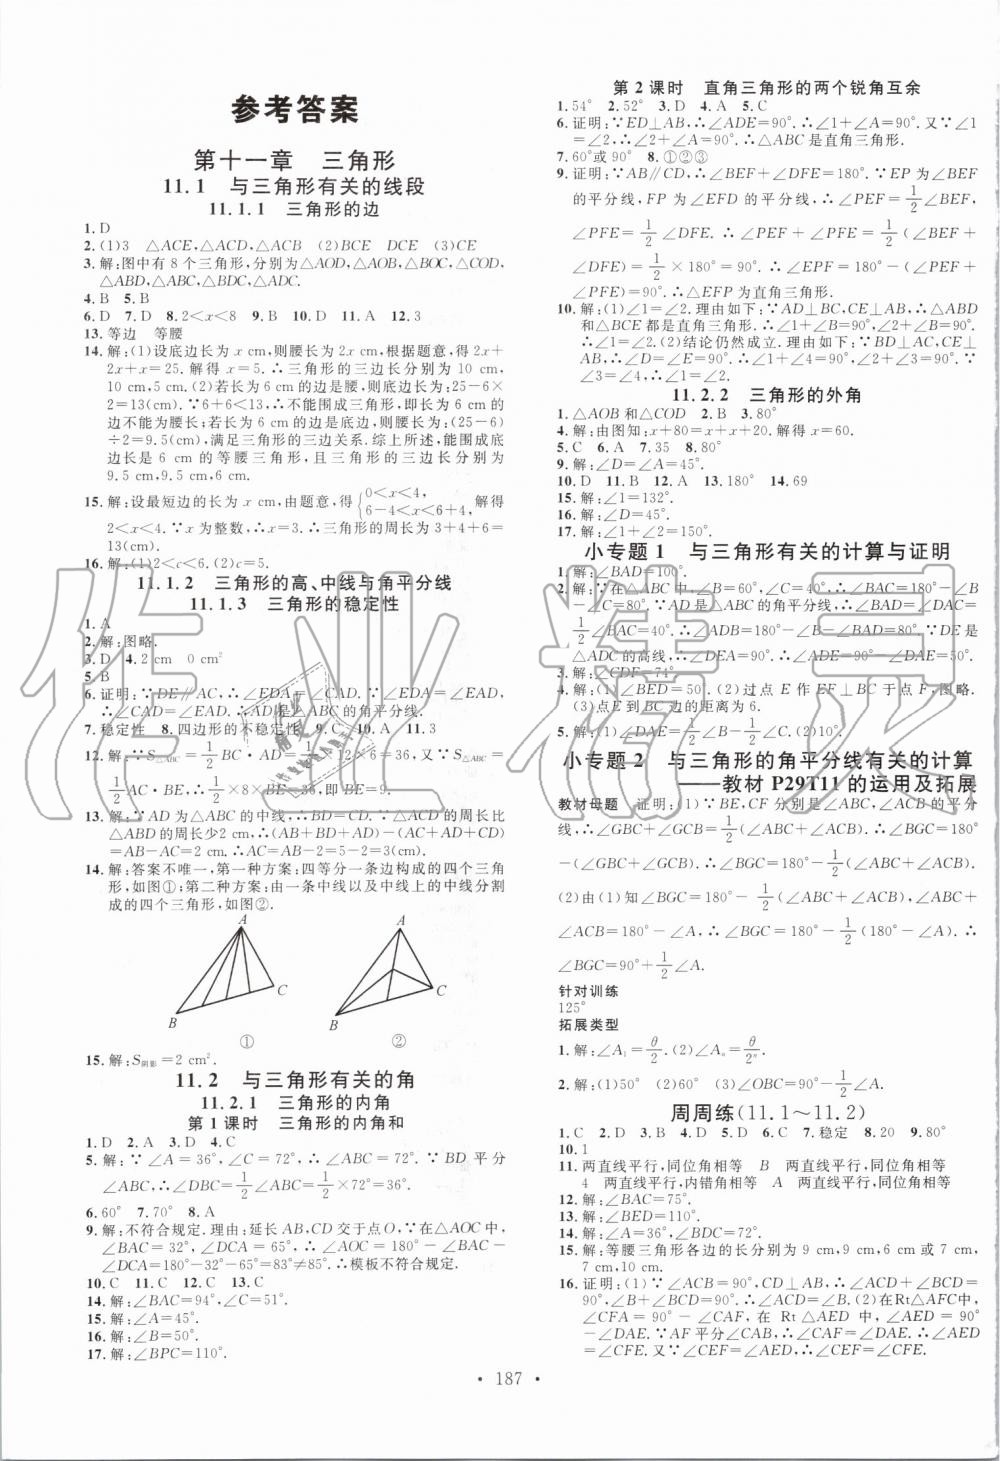 参考答案
第十一章 三角形
11.1 与三角形有关的线段
11.1.1 三角形的边
1.D
2.(1)3 △ACE,△ACD,△ACB (2)BCE DCE (3)CE
3.解:图中有8个三角形,分别为△AOD,△AOB,△BOC,△COD,
△ABD,△ABC,△BDC,△ADC.
4.B 5.B
6.D 7.D 8.2<x<8 9.B 10.D 11.A 12.3
13.等边 等腰
14.解:(1)设底边长为x cm,则腰长为2x cm,根据题意,得2x+
2x+x=25.解得x=5.∴三角形的三边长分别为10 cm,
10 cm,5 cm.(2)若长为6 cm的边是腰,则底边长为:25-6×
2=13(cm).∵6+6<13,∴不能围成三角形,即长为6 cm的
边不能为腰长;若长为6 cm的边是底边,则腰长为:(25-6)
÷2=9.5(cm),满足三角形的三边关系.综上所述,能围成底
边长是6 cm的等腰三角形,且三角形的三边长分别为
9.5 cm,9.5 cm,6 cm.
15.解:设最短边的长为x cm,由题意,得{0<x<4, 6-4<x<6+4, 解得
2<x<4.∵x为整数,∴x=3.∴三角形的周长为3+4+6=
13(cm).
16.解:(1)2<c<6.(2)c=5.
11.1.2 三角形的高、中线与角平分线
11.1.3 三角形的稳定性
1.A
2.解:图略.
3.D 4.2 cm 0 cm²
5.B
6.证明:∵DE∥AC,∴∠EDA=∠CAD.∵∠EDA=∠EAD,
∴∠CAD=∠EAD.∴AD是△ABC的角平分线.
7.稳定性 8.四边形的不稳定性 9.C 10.A 11.C
12.解:∵S△ABC=1/2BC·AD=1/2×12×6=36,又∵S△ABC=
1/2AC·BE,∴1/2×8×BE=36.∴BE=9.
13.解:∵AD为△ABC的中线,∴BD=CD.∵△ACD的周长比
△ABD的周长少2 cm,∴(AB+BD+AD)-(AC+AD+CD)
=AB-AC=2.∴AC=AB-2=5-2=3(cm).
14.解:答案不唯一,第一种方案:四等分一条边构成的四个三角
形,如图①;第二种方案:由一条中线以及中线上的中线分割
成的四个三角形,如图②.
A
B
C
①
A
B
C
②
15.解:S阴影=2 cm².
11.2 与三角形有关的角
11.2.1 三角形的内角
第1课时 三角形的内角和
1.D 2.A 3.D 4.C
5.解:∵∠A=36°,∠C=72°,∴∠ABC=72°.∵BD平分
∠ABC,∴∠DBC=1/2∠ABC=1/2×72°=36°.
6.60° 7.70° 8.A
9.解:不符合规定.理由:延长AB,CD交于点O,∵在△AOC中,
∠BAC=32°,∠DCA=65°,∴∠AOC=180°-∠BAC-
∠DCA=180°-32°-65°=83°≠85°.∴模板不符合规定.
10.C 11.C 12.C 13.C
14.解:∠BAC=94°,∠C=51°.
15.解:∠A=45°.
16.解:∠B=50°.
17.解:∠BPC=110°.
第2课时 直角三角形的两个锐角互余
1.54° 2.52° 3.D 4.A 5.C
6.证明:∵ED⊥AB,∴∠ADE=90°.∴∠1+∠A=90°.又∵∠1
=∠2,∴∠2+∠A=90°.∴△ABC是直角三角形.
7.60°或90° 8.①②③
9.证明:∵AB∥CD,∴∠BEF+∠DFE=180°.∵EP为∠BEF
的平分线,FP为∠EFD的平分线,∴∠PEF=1/2∠BEF,
∠PFE=1/2∠DFE.∴∠PEF+∠PFE=1/2(∠BEF+
∠DFE)=1/2×180°=90°.∴∠EPF=180°-(∠PEF+
∠PFE)=90°.∴△EFP为直角三角形.
10.解:(1)∠1=∠2.理由如下:∵AD⊥BC,CE⊥AB,∴△ABD
和△BCE都是直角三角形.∴∠1+∠B=90°,∠2+∠B=90°.
∴∠1=∠2.(2)结论仍然成立.理由如下:∵BD⊥AC,CE⊥
AB,∴∠D=∠E=90°.∴∠1+∠4=90°,∠2+∠3=90°.∵
∠3=∠4,∴∠1=∠2.
11.2.2 三角形的外角
1.△AOB和△COD 2.B 3.80°
4.解:由图知:x+80=x+x+20.解得x=60.
5.C 6.A 7.35 8.80°
9.解:∠D=∠A=45°.
10.D 11.B 12.A 13.180° 14.69
15.解:∠1=132°.
16.解:∠D=45°.
17.解:∠1+∠2=150°.
小专题1 与三角形有关的计算与证明
1.解:∠BAD=100°.
2.解:∵在△ABC中,∠B=60°,∠C=40°,∴∠BAC=180°-∠B
-∠C=80°.∵AD是△ABC的角平分线,∴∠BAD=∠DAC=
1/2∠BAC=40°.∴∠ADB=180°-∠B-∠BAD=80°.∵DE是
△ADC的高线,∴∠DEA=90°.∴∠ADE=90°-∠DAC=50°.
4.解:(1)∠BED=50°.(2)过点E作EF⊥BC于点F,图略.
(3)点E到BC边的距离为6.
5.解:(1)∠DAE=1/2(∠B-∠C).(2)10°.
小专题2 与三角形的角平分线有关的计算
——教材P29T11的运用及拓展
教材母题 证明:(1)∵BE,CF分别是∠ABC,∠ACB的平分
线,∴∠GBC+∠GCB=1/2(∠ABC+∠ACB).∴∠BGC=180°
-(∠GBC+∠GCB)=180°-1/2(∠ABC+∠ACB).
(2)由(1)知∠BGC=180°-1/2(∠ABC+∠ACB),∠ABC+
∠ACB=180°-∠A,∴∠BGC=180°-1/2(180°-∠A).∴
∠BGC=90°+1/2∠A.
针对训练
125°
拓展类型
1.解:∠A₁=θ/2.(2)∠Aₙ=θ/2ⁿ.
2.解:(1)50° (2)60° (3)∠OBC=90°-1/2∠A.
周周练(11.1～11.2)
1.C 2.B 3.D 4.D 5.D 6.C 7.稳定 8.20 9.80°
10.1
11.两直线平行,同位角相等 B 两直线平行,同位角相等
4 两直线平行,内错角相等 A 两直线平行,同位角相等
12.解:∠BAC=75°.
13.解:∠BED=110°.
14.解:∠A=36°,∠BDC=72°.
15.解:等腰三角形各边的长分别为9 cm,9 cm,6 cm或7 cm,
7 cm,10 cm.
16.证明:(1)∵∠ACB=90°,CD⊥AB,∴∠ACD+∠BCD=
90°,∠B+∠BCD=90°.∴∠ACD=∠B.(2)在Rt△AFC中,
∠CFA=90°-∠CAF,在Rt△AED中,∠AED=90°
-∠DAE.∵AF平分∠CAB,∴∠CAF=∠DAE.∴∠AED
=∠CFE.又∵∠CEF=∠AED,∴∠CEF=∠CFE.
• 187 •
作业精灵